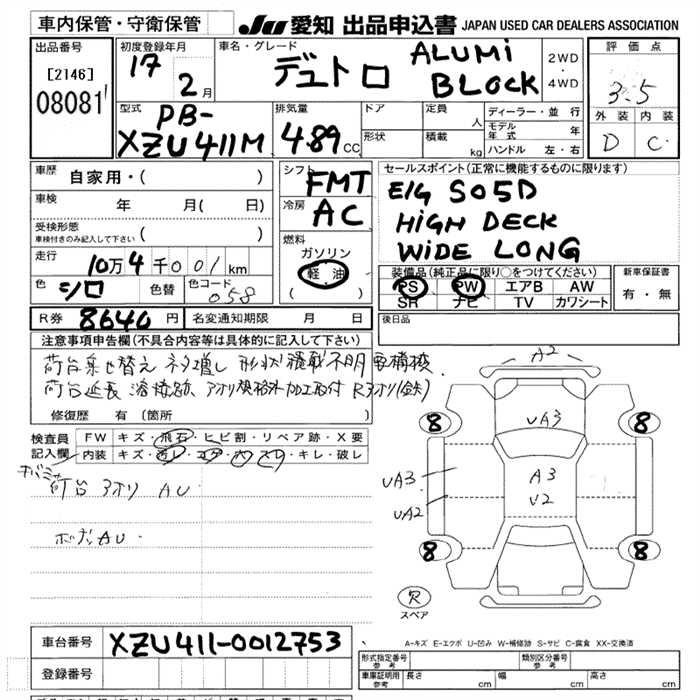 車内保管・守衛保管
JU 愛知 出品申込書 JAPAN USED CAR DEALERS ASSOCIATION
出品番号
[2146]
08081
初度登録年月
17 2月
車名・グレード
デュトロ ALUMi BLOCK
2WD・4WD
評価点
3.5
外装 内装
D C
型式
PB-XZU411M
排気量
4.89 CC
ドア
形状
定員 人
積載 kg
ディーラー・並行
モデル年式 年
ハンドル 左・右
車歴 自家用・( )
車検 年 月( 日)
受検形態
車検付きのみ記入して下さい ( )
走行 10万4千001km
色 シロ 色替 色コード 058
シフト FMT
冷房 AC
燃料
ガソリン
軽油
( )
セールスポイント(正常に機能するものに限ります)
E/G S05D
HiGH DECK
WiDE LONG
装備品(純正品に限り○をつけてください)
PS PW エアB AW
SR ナビ TV カワシート
新車保証書
有・無
後日品
R券 8640円 名変通知期限 月 日
注意事項申告欄(不具合内容等は具体的に記入して下さい)
荷台乗せ替え
荷台延長 溶接跡
修復歴 有(箇所 )
検査員記入欄
FW キズ・飛石・ヒビ割・リペア跡・X要
内装 キズ・汚レ・コゲ・穴・スレ・キレ・破レ
荷台 アオリ AU
AU
A2
UA3
8 8
A3
U2
UA3
UA2
8 8
スペア
A-キズ E-エクボ U-凹み W-補修跡 S-サビ C-腐食 XX-交換済
車台番号 XZU411-0012753
登録番号
形式指定番号 参考
類別区分番号 参考
車庫証明用 参考
長さ cm 幅 cm 高さ cm